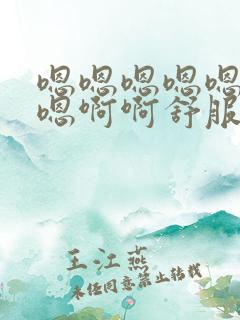 嗯嗯嗯嗯嗯
嗯啊啊舒服
王江燕
未经同意禁止转载